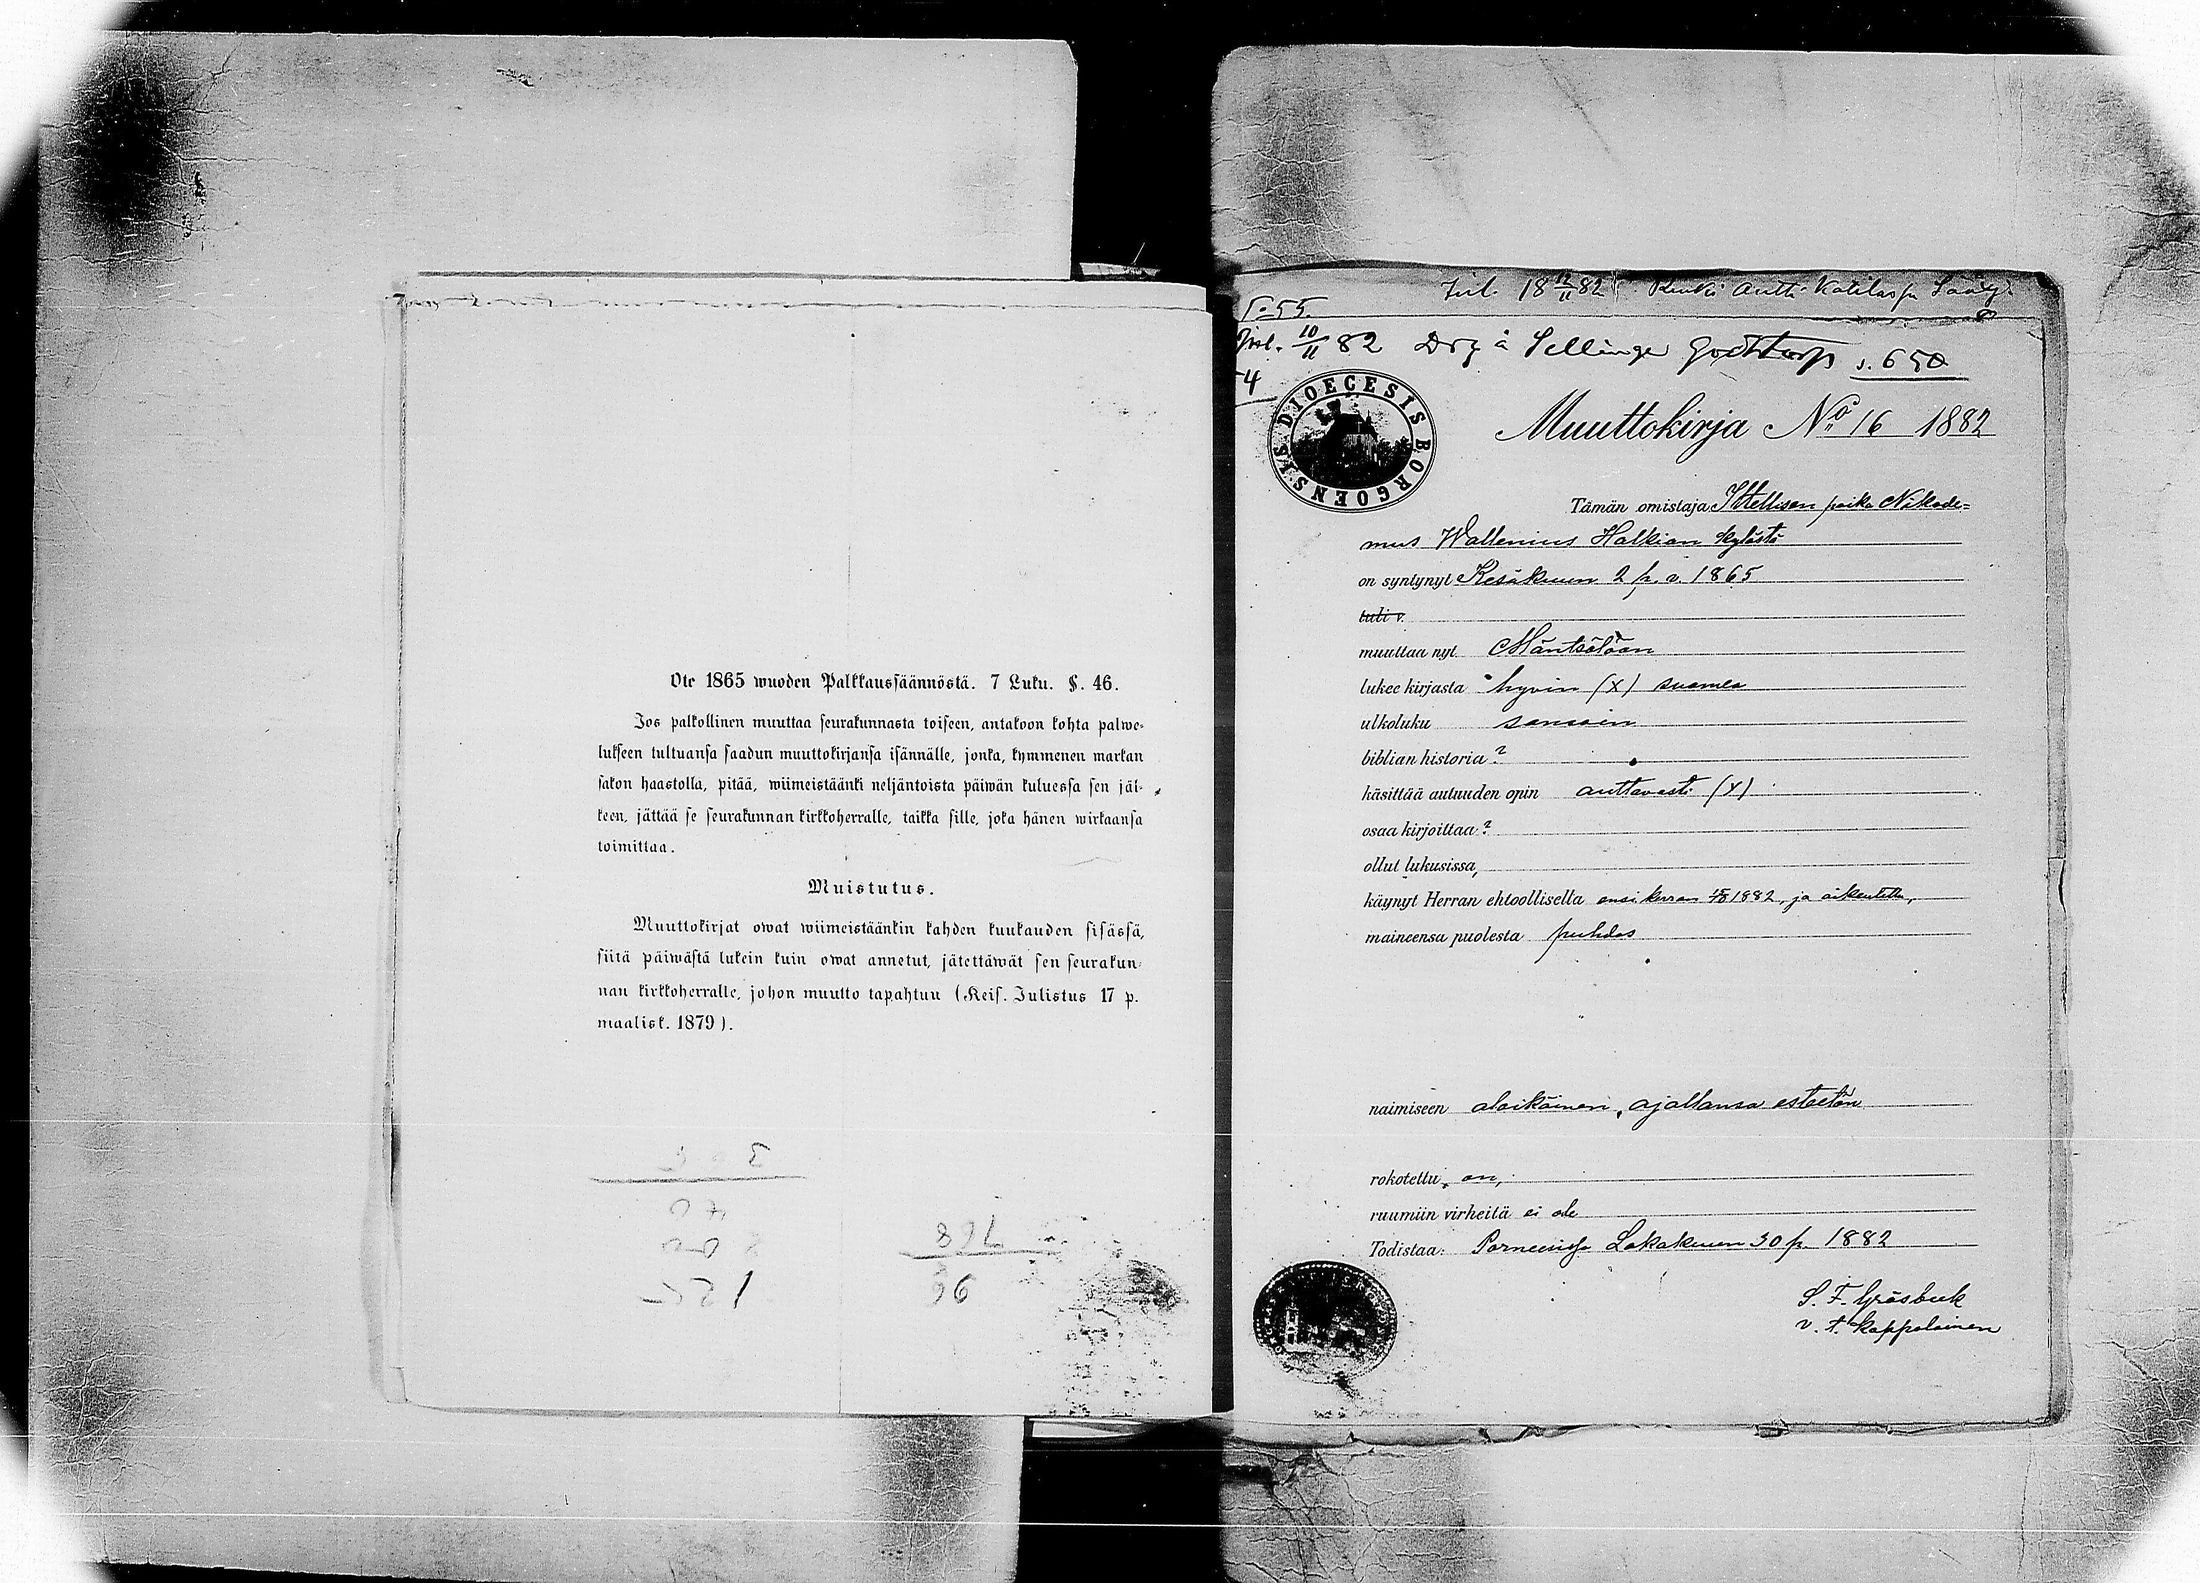 Ote 1865 wuoden Palkkaussäännöstä. 7 Luku. §. 46.
Jos palkollinen muuttaa seurakunnasta toiseen, antakoon kohta palwe-
lukseen tultuansa saadun muuttokirjansa isännälle, jonka, kymmenen markan
sakon haastolla, pitää, wiimeistäänki neljäntoista päiwän kuluessa sen jäl-
keen, jättää se seurakunnan kirkkoherralle, taikka sille, joka hänen wirkaansa
toimittaa.
Muistutus.
Muuttokirjat owat wiimeistäänkin kahden kuukauden sisässä,
siitä päiwästä lukein kuin owat annetut, jätettäwät sen seurakun-
nan kirkkoherralle, johon muutto tapahtuu (Keis. Julistus 17 p.
maalisk. 1879).
18 12/11 82 Renki Antti
10/11 82 Drg å Sellinge s. 650
DIOECESIS BORGOENSIS
Muuttokirja No 16 1882
Tämän omistaja Itsellisen poika Nikode=
mus Wallenius Halkian kylästä
on syntynyt Kesäkuun 2 p. v. 1865
tuli v.
muuttaa nyt Mäntsälään
lukee kirjasta hyvin (x) suomea
ulkoluku samoin
biblian historia?
käsittää autuuden opin auttavasti (x)
osaa kirjoittaa?
ollut lukusissa,
käynyt Herran ehtoollisella ensi kerran 1882, ja oikeutettu,
maineensa puolesta puhdas
naimiseen alaikäinen, ajallansa esteetön
rokotettu, on,
ruumiin virheitä ei ole
Todistaa: Pornaisissa Lokakuun 30 p. 1882
S. F. Gräsbeck
v. t. kappalainen